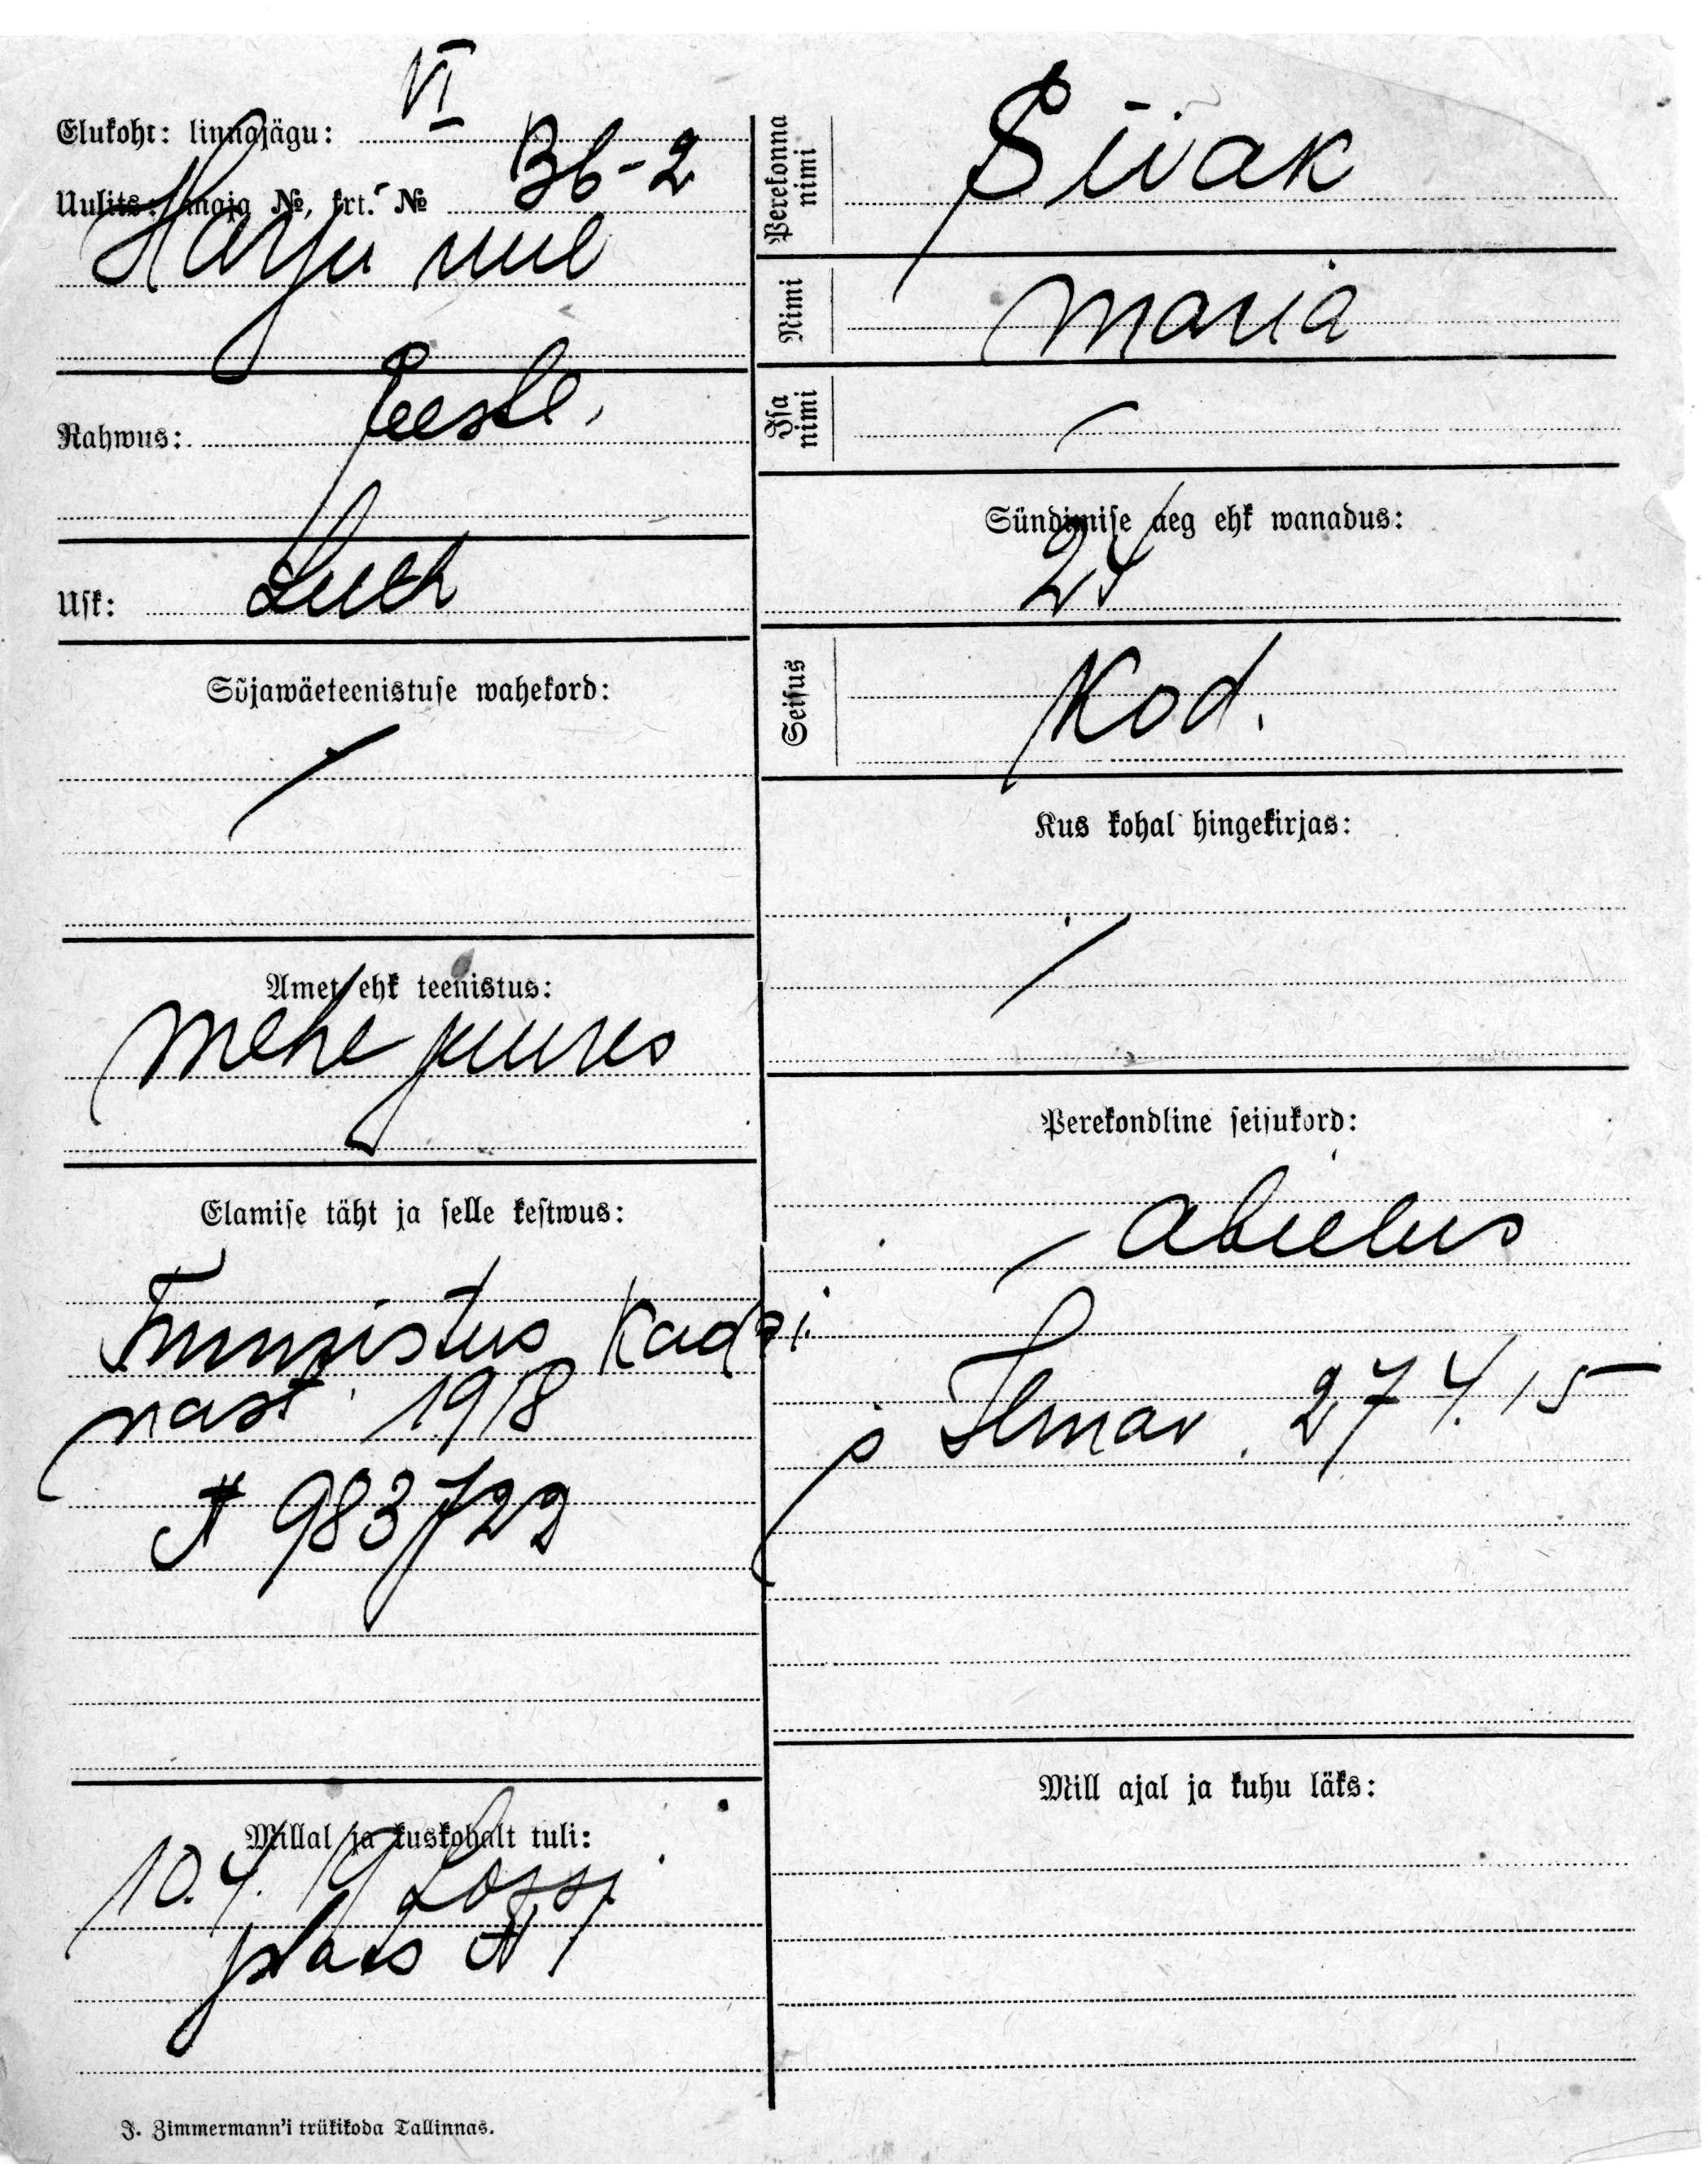 Elukoht: linnajägu: VI
Uulits: maja №, krt. № 36-2
Harju uul
Rahwus: Eestl.
Usk: Luth
Sõjawäeteenistuse wahekord:
Amet ehk teenistus:
Mehe juures
Elamise täht ja selle kestwus:
Tunnistus Kadri
nast 1918
№ 983722
Millal ja kuskohalt tuli:
10.4.19 Lossi
plats № 1
J. Zimmermann'i trükikoda Tallinnas.
Perekonna nimi Siiak
Nimi Maria
Isa nimi –
Sündimise aeg ehk wanadus:
24
Seisus Kod.
Kus kohal hingekirjas:
Perekondline seisukord:
– abielus
p Ilmar. 27 4. 15
Mill ajal ja kuhu läks: